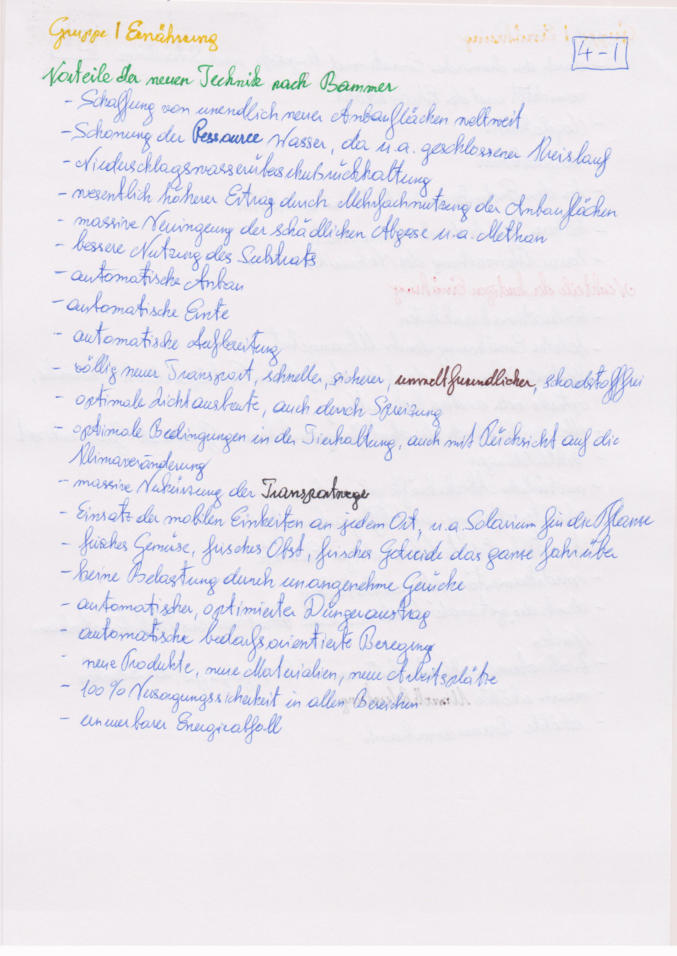 Gruppe 1 Ernährung
4-1
Vorteile der neuen Technik nach Bammer
- Schaffung von unendlich neuer Anbauflächen weltweit
- Schonung der Ressource Wasser, da u.a. geschlossener Kreislauf
- Niederschlagswasserüberschußrückhaltung
- wesentlich höherer Ertrag durch Mehrfachnutzung der Anbauflächen
- massive Verringerung der schädlichen Abgase u.a. Methan
- bessere Nutzung des Substrats
- automatische Anbau
- automatische Ernte
- automatische Aufbereitung
- völlig neuer Transport, schneller, sicherer, umweltfreundlicher, schadstofffrei
- optimale Lichtausbeute, auch durch Spreizung
- optimale Bedingungen in der Tierhaltung, auch mit Rücksicht auf die
Klimaveränderung
- massive Verkürzung der Transportwege
- Einsatz der mobilen Einheiten an jedem Ort, u.a. Solarium für die Pflanze
- frisches Gemüse, frisches Obst, frisches Getreide das ganze Jahr über
- keine Belastung durch unangenehme Gerüche
- automatischer, optimierter Düngeraustrag
- automatische bedarfsorientierte Beregnung
- neue Produkte, neue Materialien, neue Arbeitsplätze
- 100% Versorgungssicherheit in allen Bereichen
- erneuerbarer Energieabfall